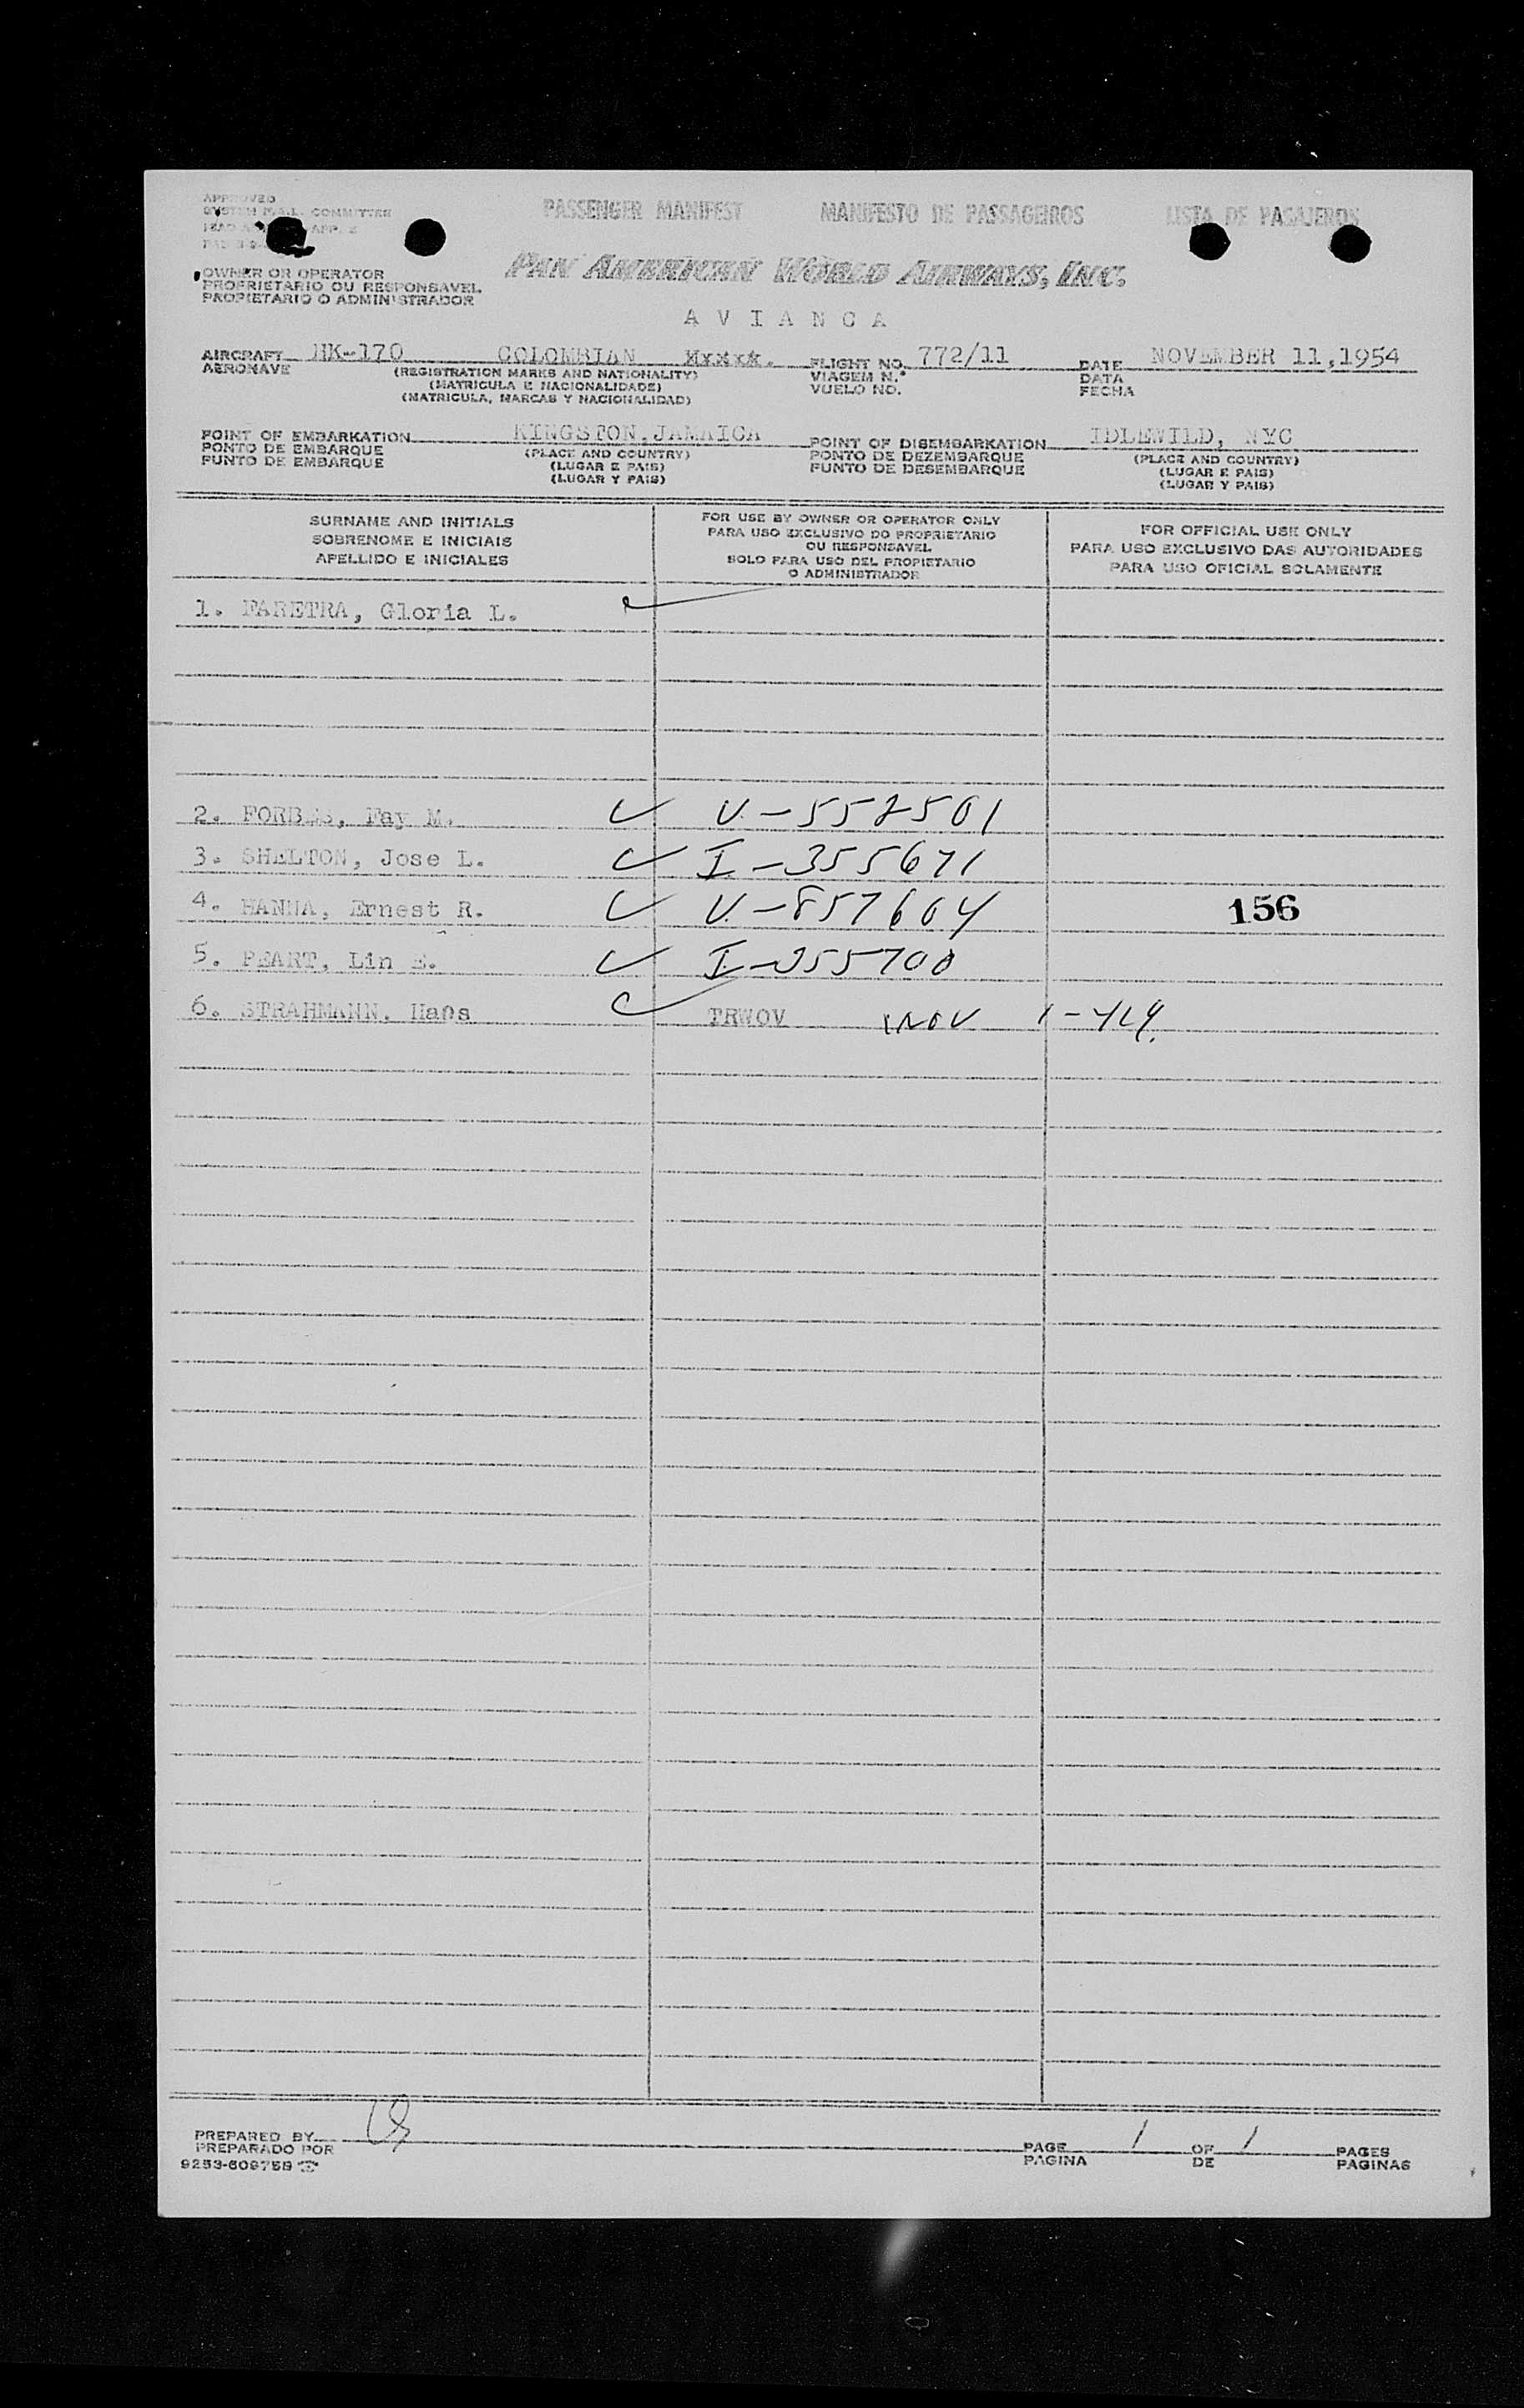 APPROVED
SYSTEM MAIL COMMITTEE
PASSENGER MANIFEST MANIFESTO DE PASSAGEIROS LISTA DE PASAJEROS
OWNER OR OPERATOR
PROPRIETARIO OU RESPONSAVEL
PROPIETARIO O ADMINISTRADOR
PAN AMERICAN WORLD AIRWAYS, INC.
A V I A N C A
AIRCRAFT HK-170 COLOMBIAN FLIGHT NO. 772/11 DATE NOVEMBER 11,1954
AERONAVE (REGISTRATION MARKS AND NATIONALITY) VIAGEM N.° DATA
(MATRICULA E NACIONALIDADE) VUELO NO. FECHA
(MATRICULA, MARCAS Y NACIONALIDAD)
POINT OF EMBARKATION KINGSTON,JAMAICA POINT OF DISEMBARKATION IDLEWILD, NYC
PONTO DE EMBARQUE (PLACE AND COUNTRY) PONTO DE DEZEMBARQUE (PLACE AND COUNTRY)
PUNTO DE EMBARQUE (LUGAR E PAIS) PUNTO DE DESEMBARQUE (LUGAR E PAIS)
(LUGAR Y PAIS) (LUGAR Y PAIS)
SURNAME AND INITIALS
SOBRENOME E INICIAIS
APELLIDO E INICIALES
FOR USE BY OWNER OR OPERATOR ONLY
PARA USO EXCLUSIVO DO PROPRIETARIO
OU RESPONSAVEL
SOLO PARA USO DEL PROPIETARIO
O ADMINISTRADOR
FOR OFFICIAL USE ONLY
PARA USO EXCLUSIVO DAS AUTORIDADES
PARA USO OFICIAL SOLAMENTE
1. FARETRA, Gloria L.
2. FORBES, Fay M. V-557501
3. SHELTON, Jose L. I-355671
4. HANNA, Ernest R. V-857604 156
5. PEART, Lin E. I-355700
6. STRAHMANN, Hans TRWOV
PREPARED BY
PREPARADO POR
PAGE 1 OF 1 PAGES
PAGINA DE PAGINAS
9253-609758